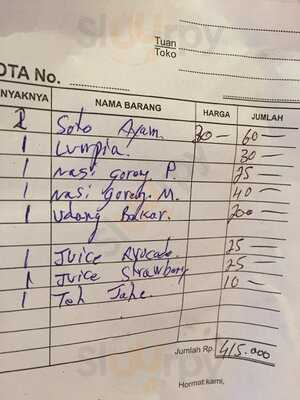 Tuan
Toko
NOTA No.
NYAKNYA NAMA BARANG HARGA JUMLAH
2 Soto Ayam. 30 — 60 —
1 Lumpia. 30 —
1 Nasi Goreng P. 25 —
1 Nasi Goreng M. 40 —
1 Udang Bakar. 200 —
1 Juice Avocado. 25 —
1 Juice Strawbery 25 —
1 Teh Jahe. 10 —
Jumlah Rp. 415.000
Hormat kami,